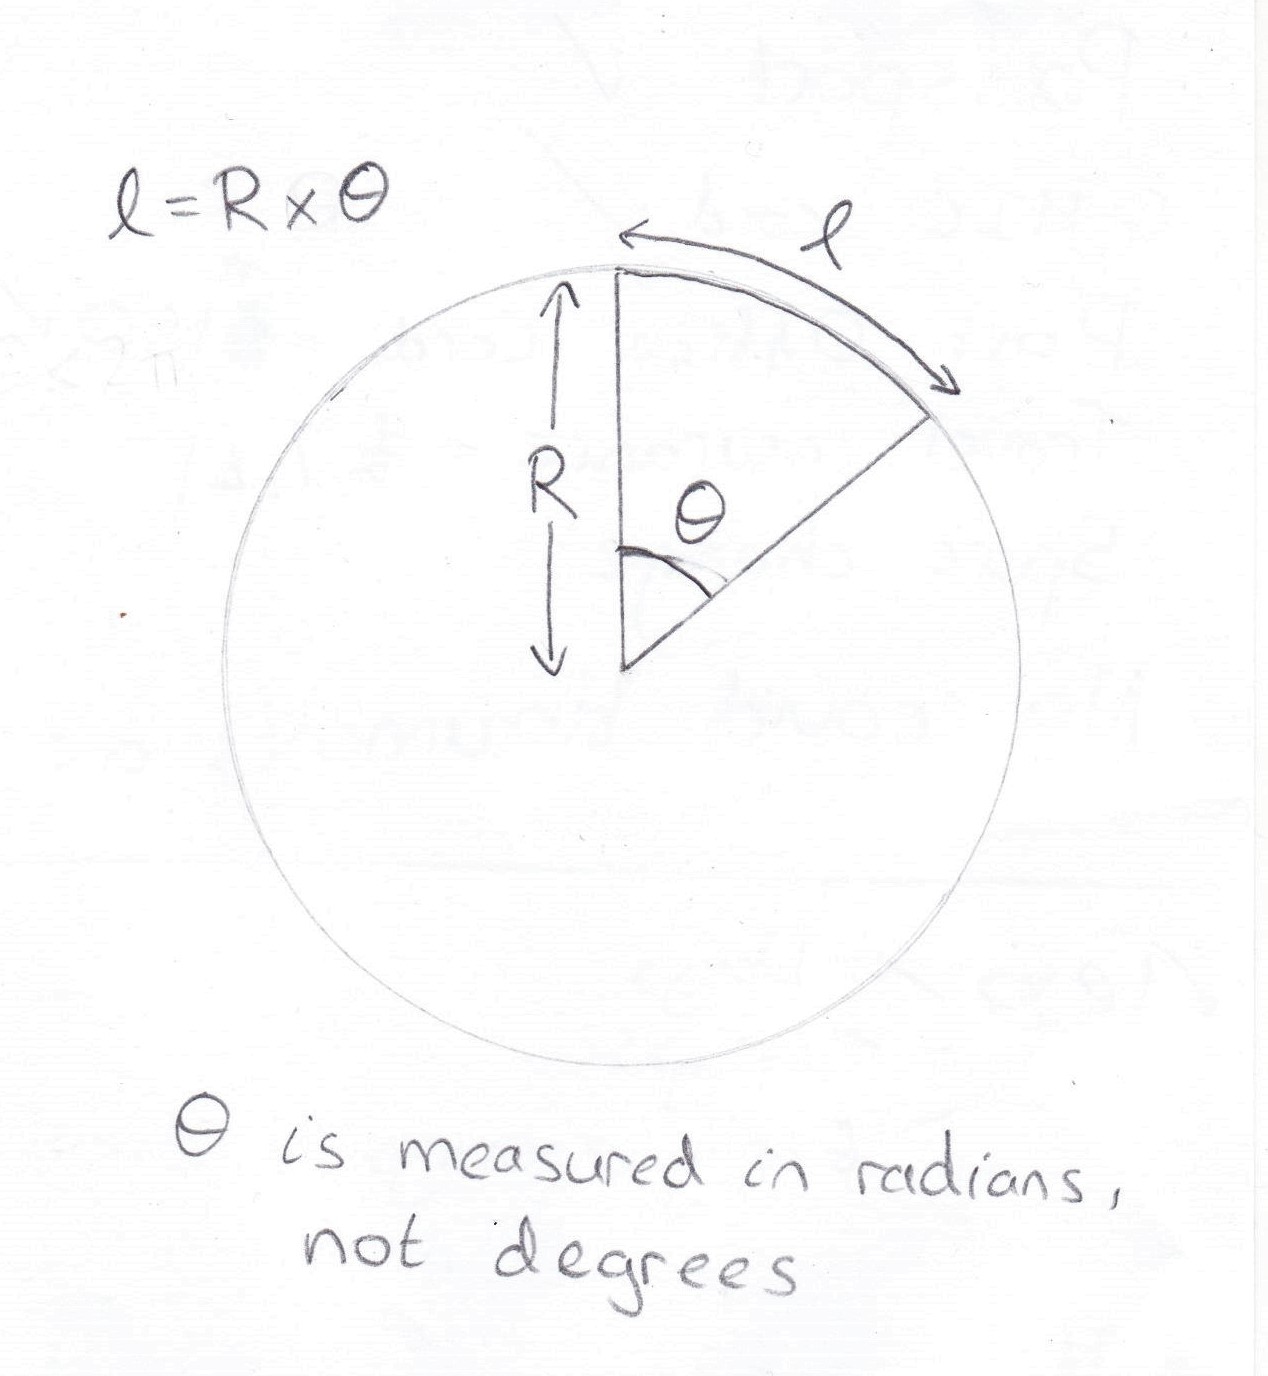 l = R x θ
l
R
θ
θ is measured in radians,
not degrees